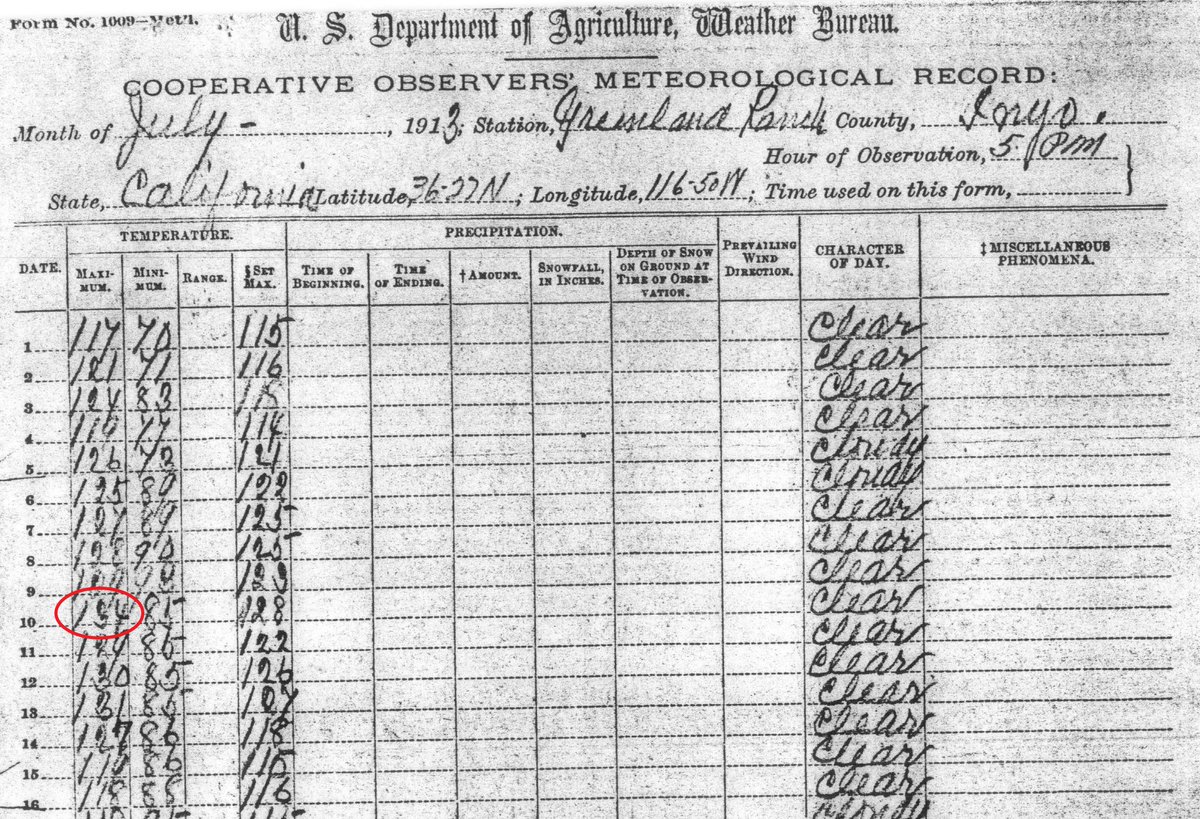 Form No. 1009—Met'l.
U. S. Department of Agriculture, Weather Bureau.
COOPERATIVE OBSERVERS' METEOROLOGICAL RECORD:
Month of July, 1913; Station, Greenland Ranch County, Inyo.
Hour of Observation, 5 PM
State, California Latitude, 36-27N; Longitude, 116-50W; Time used on this form,
TEMPERATURE. PRECIPITATION.
DATE. MAXIMUM. MINIMUM. RANGE. §SET MAX. TIME OF BEGINNING. TIME OF ENDING. †AMOUNT. SNOWFALL, IN INCHES. DEPTH OF SNOW ON GROUND AT TIME OF OBSERVATION. PREVAILING WIND DIRECTION. CHARACTER OF DAY. ‡MISCELLANEOUS PHENOMENA.
1 117 70 115 Clear
2 121 71 116 Clear
3 124 83 Clear
4 119 114 Clear
5 126 121 Cloudy
6 125 122 Cloudy
7 127 89 125 Clear
8 128 90 125 Clear
9 123 Clear
10 134 85 128 Clear
11 129 86 122 Clear
12 130 85 126 Clear
13 131 127 Clear
14 127 118 Clear
15 119 115 Clear
16 118 116 Clear
Cloudy